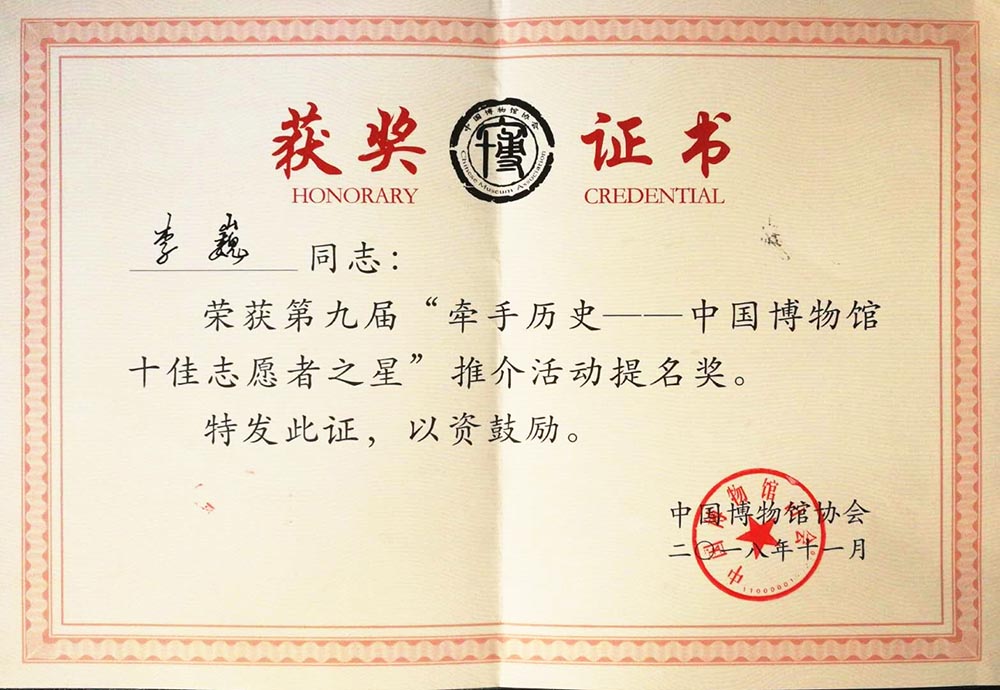 获奖 证书
HONORARY CREDENTIAL
中国博物馆协会
Chinese Museum Association
李巍 同志：
荣获第九届“牵手历史——中国博物馆
十佳志愿者之星”推介活动提名奖。
特发此证，以资鼓励。
中国博物馆协会
二〇一八年十一月
中国博物馆协会